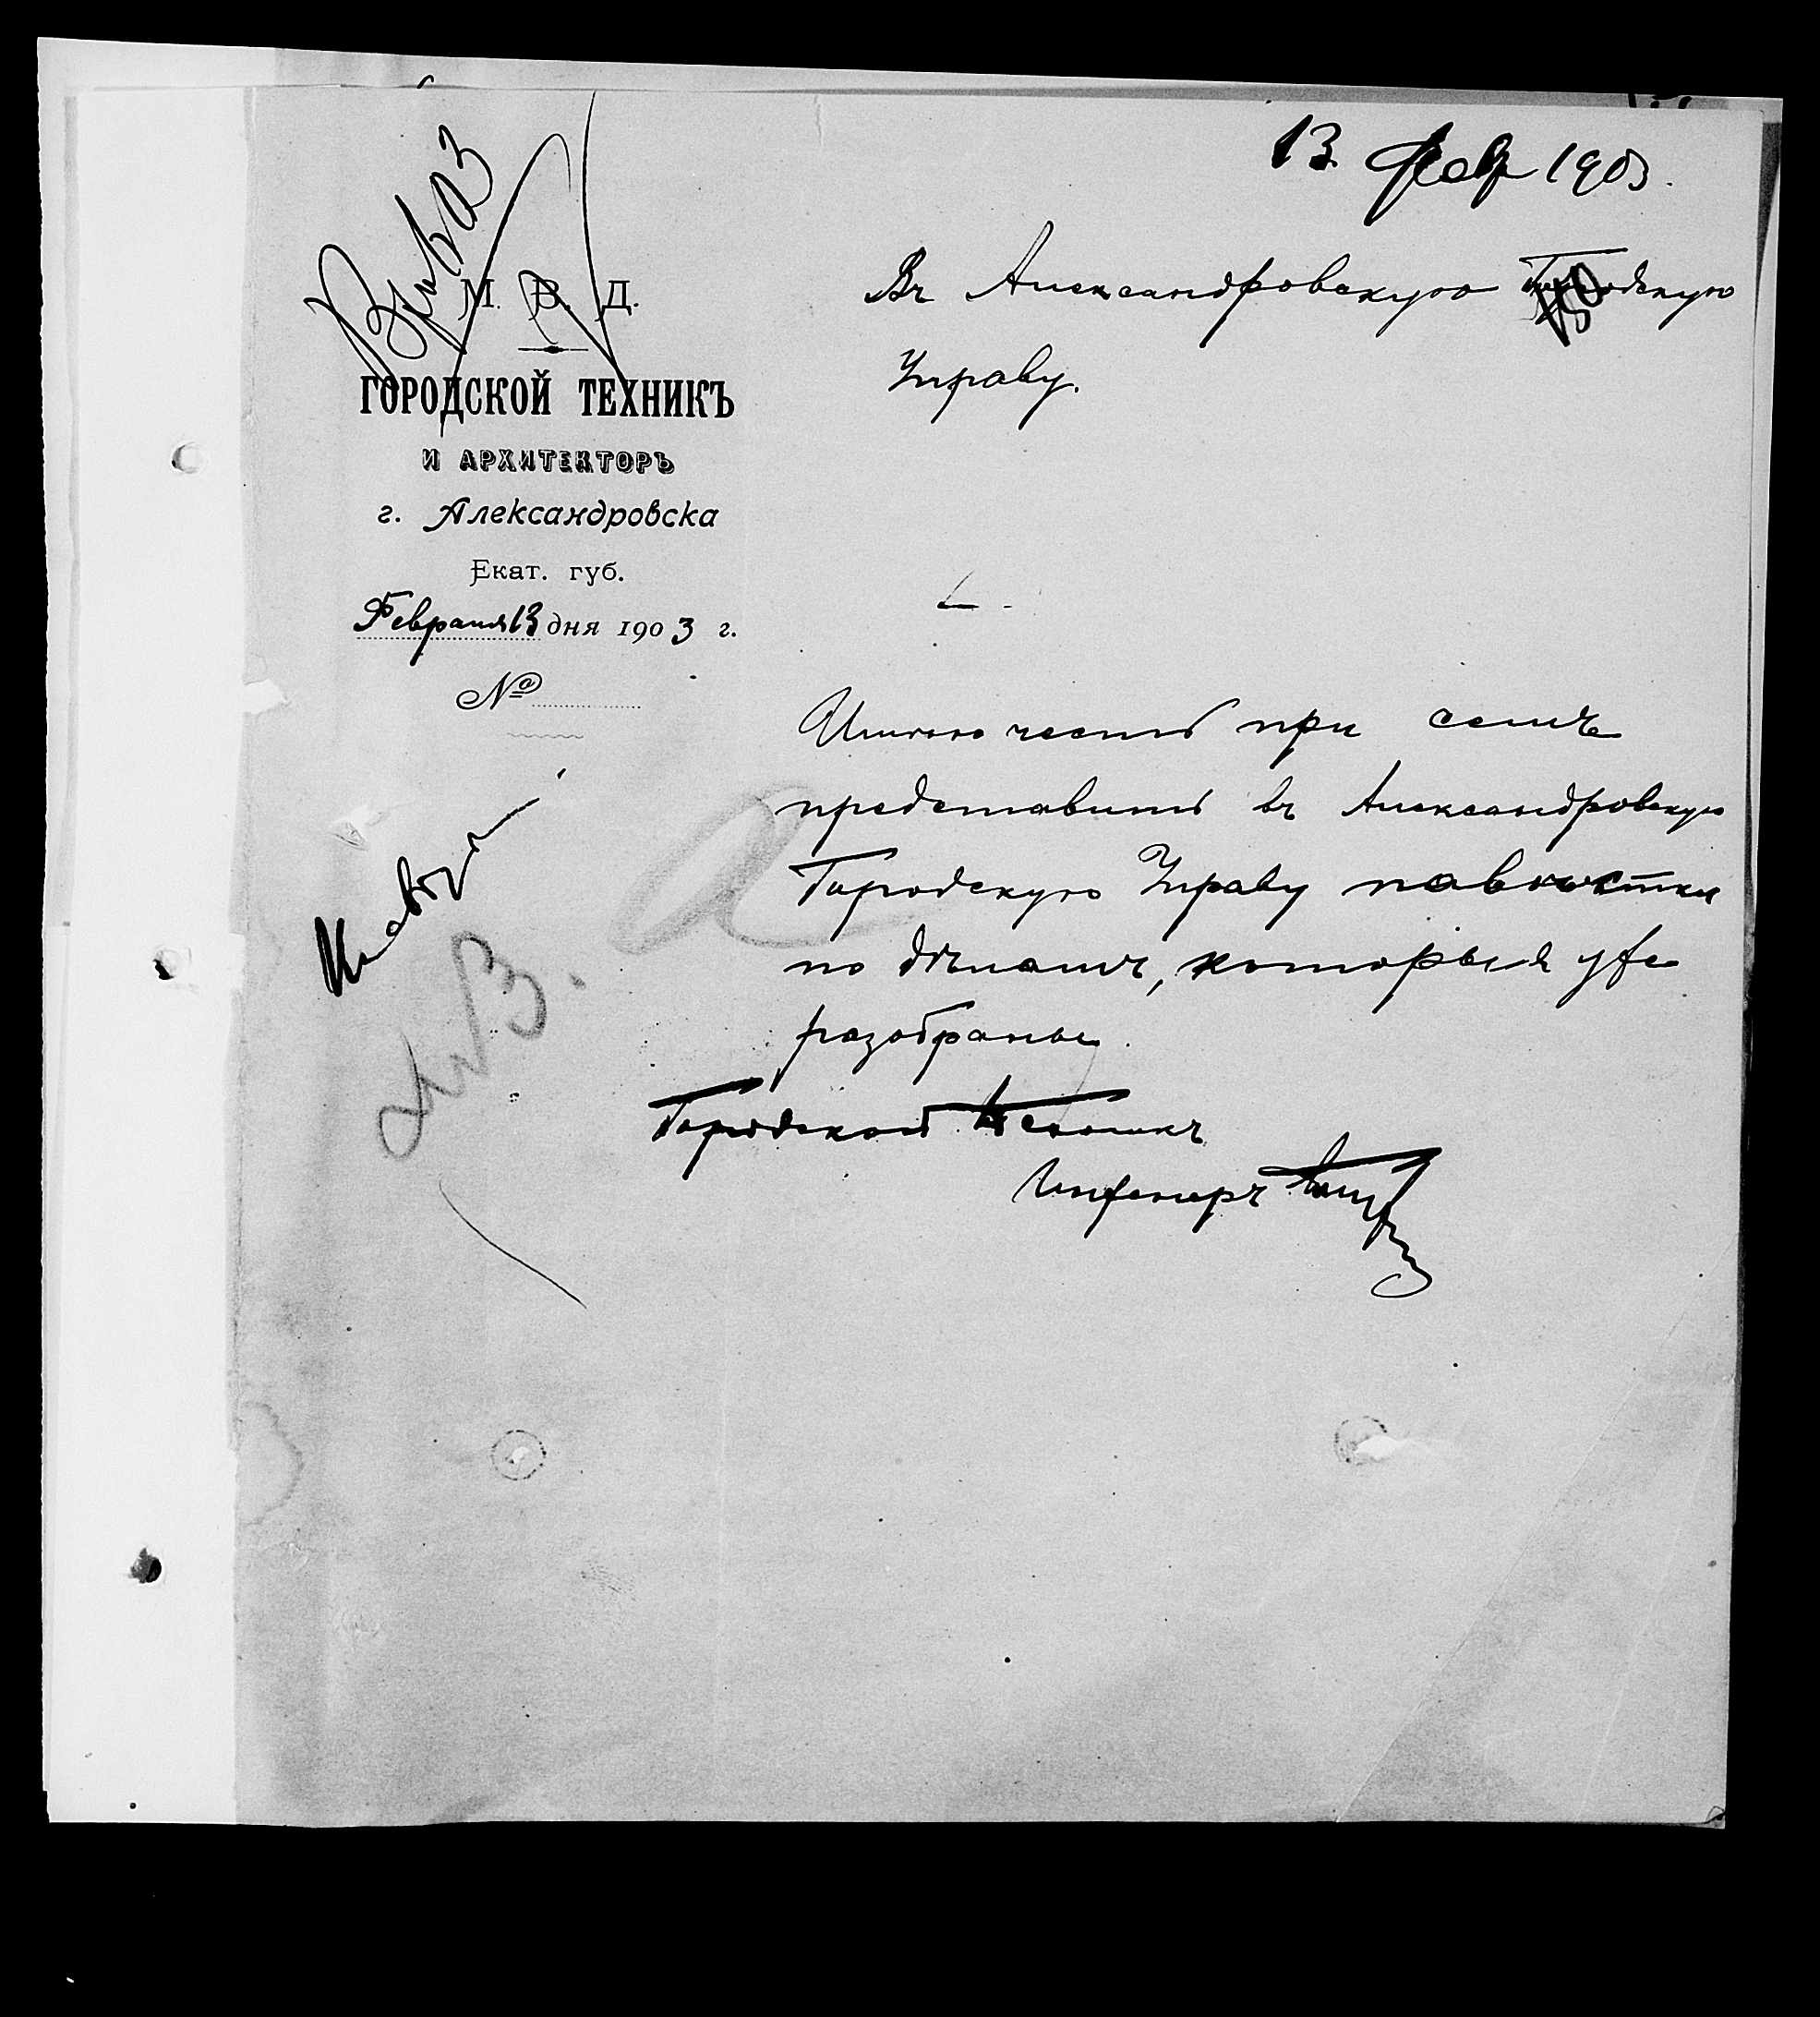 13 Фев 1903.
М. В. Д.
ГОРОДСКОЙ ТЕХНИКЪ
И АРХИТЕКТОРЪ
г. Александровска
Екат. губ.
Февраля 13 дня 1903 г.
№
Въ Александровскую Городскую
Управу.
Имѣю честь при семъ
представить въ Александровскую
Городскую Управу повѣстки
по дѣламъ, которыя уже
разобраны.
Городской Техникъ
Инженеръ